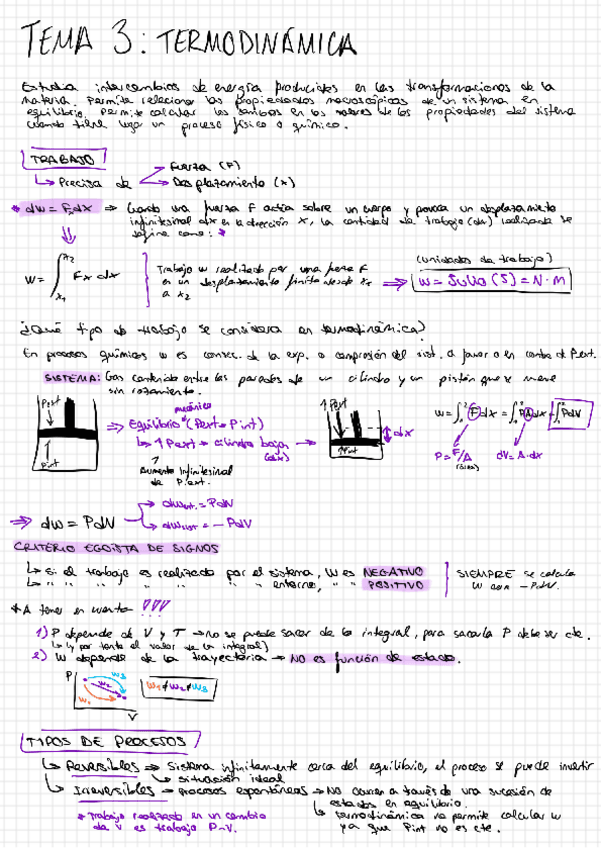 TEMA 3: TERMODINÁMICA
Estudia intercambios de energía producidos en las transformaciones de la
materia. Permite relacionar las propiedades macroscópicas de un sistema en
equilibrio. Permite calcular los cambios en los valores de las propiedades del sistema
cuando tiene lugar un proceso físico o químico.
TRABAJO
Fuerza (F)
↳ Precisa de
Desplazamiento (x)
* dw = Fxdx ⇒ Cuando una fuerza F actúa sobre un cuerpo y provoca un desplazamiento
infinitesimal dx en la dirección x, la cantidad de trabajo (dw) realizada se
define como: *
(unidades de trabajo)
w = ∫ x₂ x₁ Fx dx
Trabajo w realizado por una fuerza F
en un desplazamiento finito desde x₁
a x₂
⇒ w = Julio (J) = N·m
¿Qué tipo de trabajo se considera en termodinámica?
En procesos químicos w es consec. de la exp. o compresión del sist. a favor o en contra de Pext.
SISTEMA: Gas contenido entre las paredes de un cilindro y un pistón que se mueve
sin rozamiento.
Pext
Pint
mecánico
⇒ Equilibrio (Pext = Pint)
↳ ↑ Pext → cilindro baja
(dx)
Aumento infinitesimal
de P.ext.
↑ Pext
↑Pint
dx
w = ∫Fdx = ∫PAdx = ∫PdV
P = F/A
dV = A·dx
⇒ dw = PdV
= PdV
= - PdV
CRITERIO EGOISTA DE SIGNOS
↳ Si el trabajo es realizado por el sistema, W es NEGATIVO
↳ " " " " " " entorno, " " POSITIVO
SIEMPRE se calcula
w con -PdV.
* A tener en cuenta !!!
1) P depende de V y T → no se puede sacar de la integral, para sacarla P debe ser cte.
↳ (y por tanto el valor de la integral)
2) W depende de la trayectoria → NO es función de estado.
P
w₃
w₂
w₁
V
w₁≠w₂≠w₃
TIPOS DE PROCESOS
↳ Reversibles → Sistema infinitamente cerca del equilibrio, el proceso se puede invertir
↳ situación ideal
↳ Irreversibles → procesos espontáneos → No ocurren a través de una sucesión de
estados en equilibrio.
↳ termodinámica no permite calcular w
ya que Pint no es cte.
* Trabajo realizado en un cambio
de V es trabajo P-V.